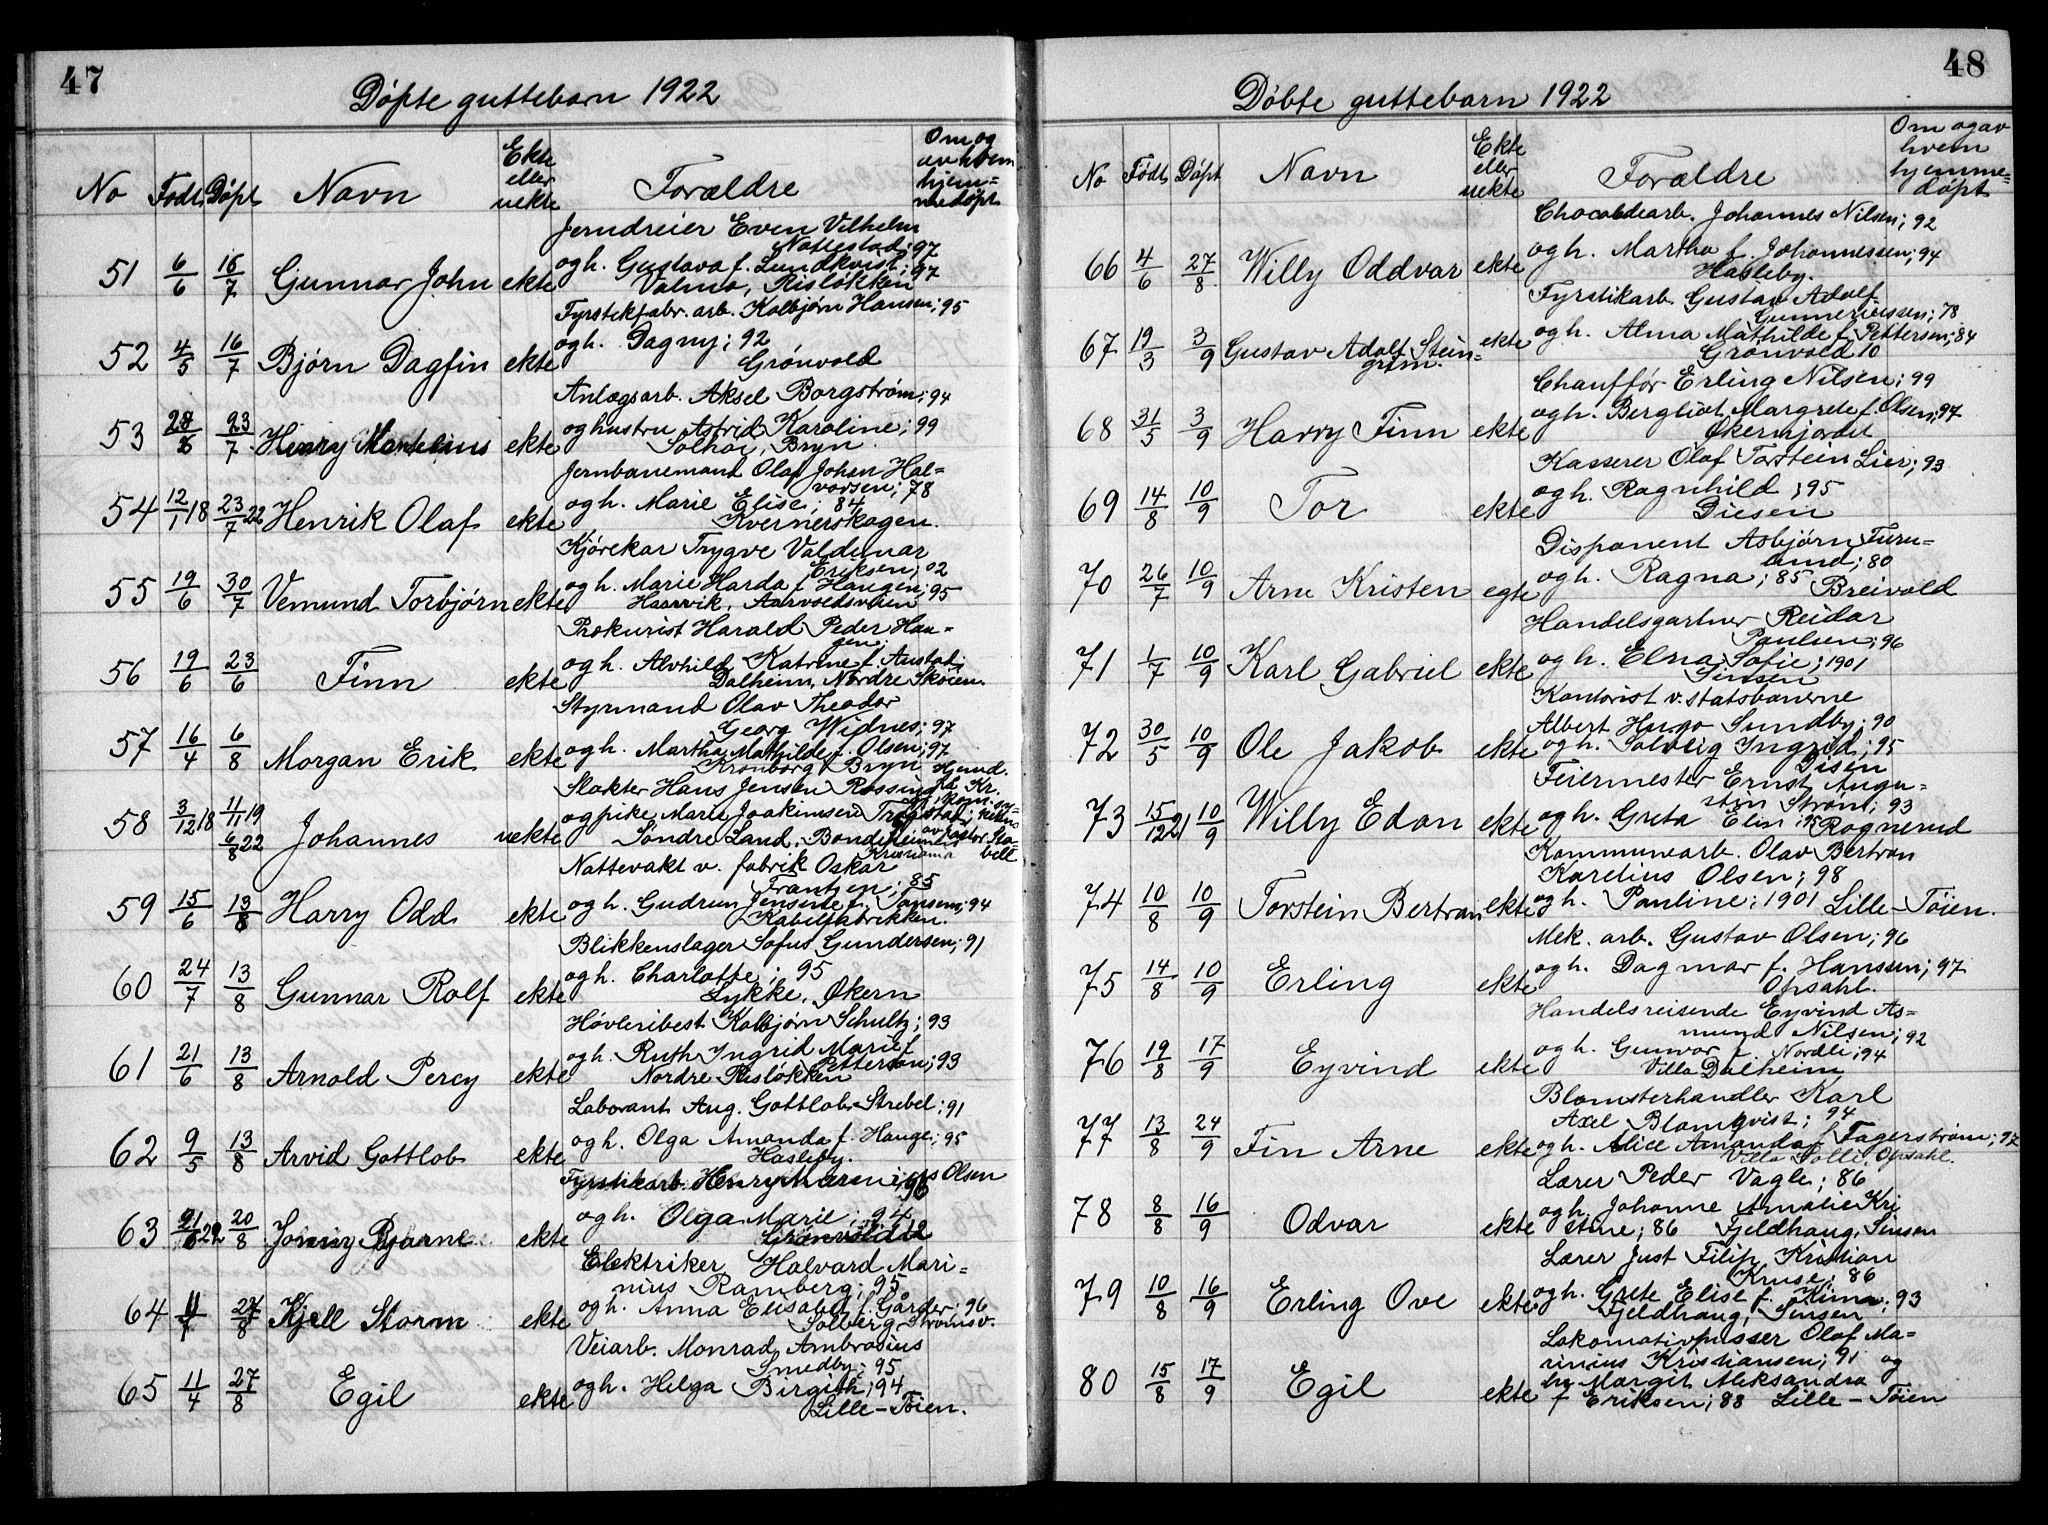 47
Døpte guttebarn 1922
No Født Døpt Navn Ekte eller uekte Forældre Om og av hvem hjem= medøpt
51 6/6 16/7 Gunnar John ekte Jerndreier Even Vilhelm
Nattestad; 97
og h. Gustava f. Lundkvist; 97
Valmo, Risløkken
52 4/5 16/7 Bjørn Dagfin ekte Fyrstikfabr. arb. Kolbjørn Hansen; 95
og h. Dagny; 92
Grønvold
53 23/7 Henry ekte Anlægsarb. Aksel Borgstrøm; 94
og hustru Astrid Karoline; 99
Solhøi, Bryn
54 12/1 18 23/7 22 Henrik Olaf ekte Jernbanemand Olaf Johan Hal=
vorsen; 78
og h. Marie Elise; 84
Kvernerskogen.
55 19/6 30/7 Vemund Torbjørn ekte Kjørekar Trygve Valdemar
Eriksen; 02
og h. Marie Harda f. Haugen; 95
Haarvik, Aarvoldsveien
56 19/6 23/6 Finn ekte Prokurist Harald Peder Hau=
gen
og h. Alvhild Katrine f. Austad;
Dalheim, Nordre Skøien.
57 16/4 6/8 Morgan Erik ekte Styrmand Olav Theodor
Georg Widnes; 97
og h. Martha Mathilde f. Olsen; 97
Kronborg Bryn
58 3/12 18 11/11 19 6/8 22 Johannes uekte Slakter Hans Jensen Rossing
og pike Marie Joakimsen Trøgstad;
Søndre Land. Bondeheimen
Kristiania
Hjemd.
av pastor
59 15/6 13/8 Harry Odd ekte Nattevakt v. fabrik Oskar
Frantzen; 85
og h. Gudrun Jensine f. Jansen; 94
Kabelfabrikken.
60 24/7 13/8 Gunnar Rolf ekte Blikkenslager Sofus Gundersen; 91
og h. Charlotte; 95
Lykke, Økern
61 21/6 13/8 Arnold Percy ekte Høvleribest. Kolbjørn Schultz; 93
og h. Ruth Ingrid Marie f.
Petterson; 93
Nordre Risløkken
62 9/5 13/8 Arvid Gottlob ekte Laborant Aug. Gottlob Strebel; 91
og h. Olga Amanda f. Hauge; 95
Hasleby.
63 20/8 Bjarne ekte Fyrstikarb. Henry Olsen
96
og h. Olga Marie; 94
64 Kjell Storm ekte Elektriker Halvard Mari=
nius Ramberg; 95
og h. Anna Elisabet f. Gårder; 96
Solberg Strømsv.
65 11/7 27/8 Egil ekte Veiarb. Monrad Ambrosius
Smedby; 95
og h. Helga Birgith; 94
Lille-Tøien.
48
Døbte guttebarn 1922
No Født Døpt Navn Ekte eller uekte Forældre Om og av hvem hjemme= døpt
66 4/6 27/8 Willy Oddvar ekte Chocoladearb. Johannes Nilsen; 92
og h. Martha f. Johannessen; 94
Hasleby.
67 19/3 3/9 Gustav Adolf Stein=
grim. ekte Fyrstikarb. Gustav Adolf
Gunneriussen; 78
og h. Alma Mathilde f. Pettersen; 84
Grønvold 10
68 31/5 3/9 Harry Finn ekte Chauffør Erling Nilsen; 99
og h. Bergliot Margrete f. Olsen; 97
Økernjordet
69 14/8 10/9 Tor ekte Kasserer Olaf Torstein Lier; 93
og h. Ragnhild; 95
Disen
70 26/7 10/9 Arne Kristen egte Disponent Asbjørn Furu=
lund; 80
og h. Ragna; 85 Breivold
71 1/7 10/9 Karl Gabriel ekte Handelsgartner Reidar
Paulsen; 96
og h. Elna Sofie; 1901
Sinsen
72 30/5 10/9 Ole Jakob ekte Kontorist v. statsbanerne
Albert Hugo Sundby; 90
og h. Solveig Ingrid; 95
Disen
73 15/12 21 10/9 Willy Edon ekte Feiermester Ernst Augu=
stin Strøm; 93
og h. Greta Elin; 95 Rognerud
74 10/8 10/9 Torstein Bertran ekte Kommunearb. Olav Bertran
Karelius Olsen; 98
og h. Pauline; 1901 Lille-Tøien.
75 14/8 10/9 Erling ekte Mek. arb. Gustav Olsen; 96
og h. Dagmar f. Hanssen; 97
Opsahl.
76 19/8 17/9 Eyvind ekte Handelsreisende Eyvind As=
mund Nilsen; 92
og h. Gunvor f. Nordli; 94
Villa Dalheim
77 13/8 24/9 Fin Arne ekte Blomsterhandler Karl
Axel Blomqvist; 94
og h. Alice Amanda f. Fagerstrøm; 97
Villa Solli, Opsahl.
78 8/8 16/9 Odvar ekte Lærer Peder Vagle; 86
og h. Johanne Amalie Kri
stine; 86 Fjeldhaug, Sinsen
79 10/8 16/9 Erling Ove ekte Lærer Just Filip Kristian
Kruse; 86
og h. Grete Elise f. Kima; 93
Fjeldhaug, Sinsen
80 15/8 17/9 Egil ekte Lokomotivpusser Olaf Ma=
rinius Kristiansen; 91 og
h. Margit Aleksandra
f Eriksen; 88 Lille-Tøien